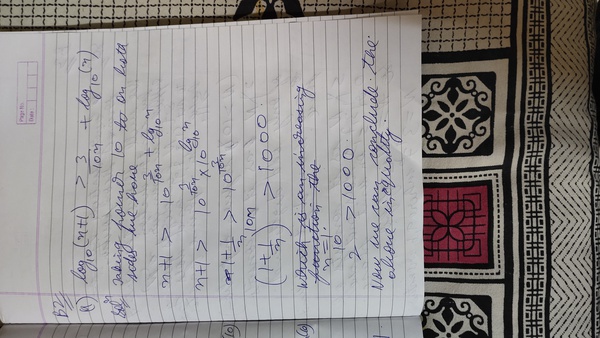 Page No.
Date
B2
(A) log₁₀(n+1) > 3/10n + log₁₀(n)
Solⁿ Taking power 10 to on both
sides we have
n+1 > 10^(3/10n + log₁₀n)
n+1 > 10^(3/10n) × 10^(log₁₀n)
1+1/n > 10^(3/10n)
(1+1/n)^(10n) > 1000.
Which is an increasing
function the
n=1.
2^10 > 1000.
Now we can conclude the
above inequality.